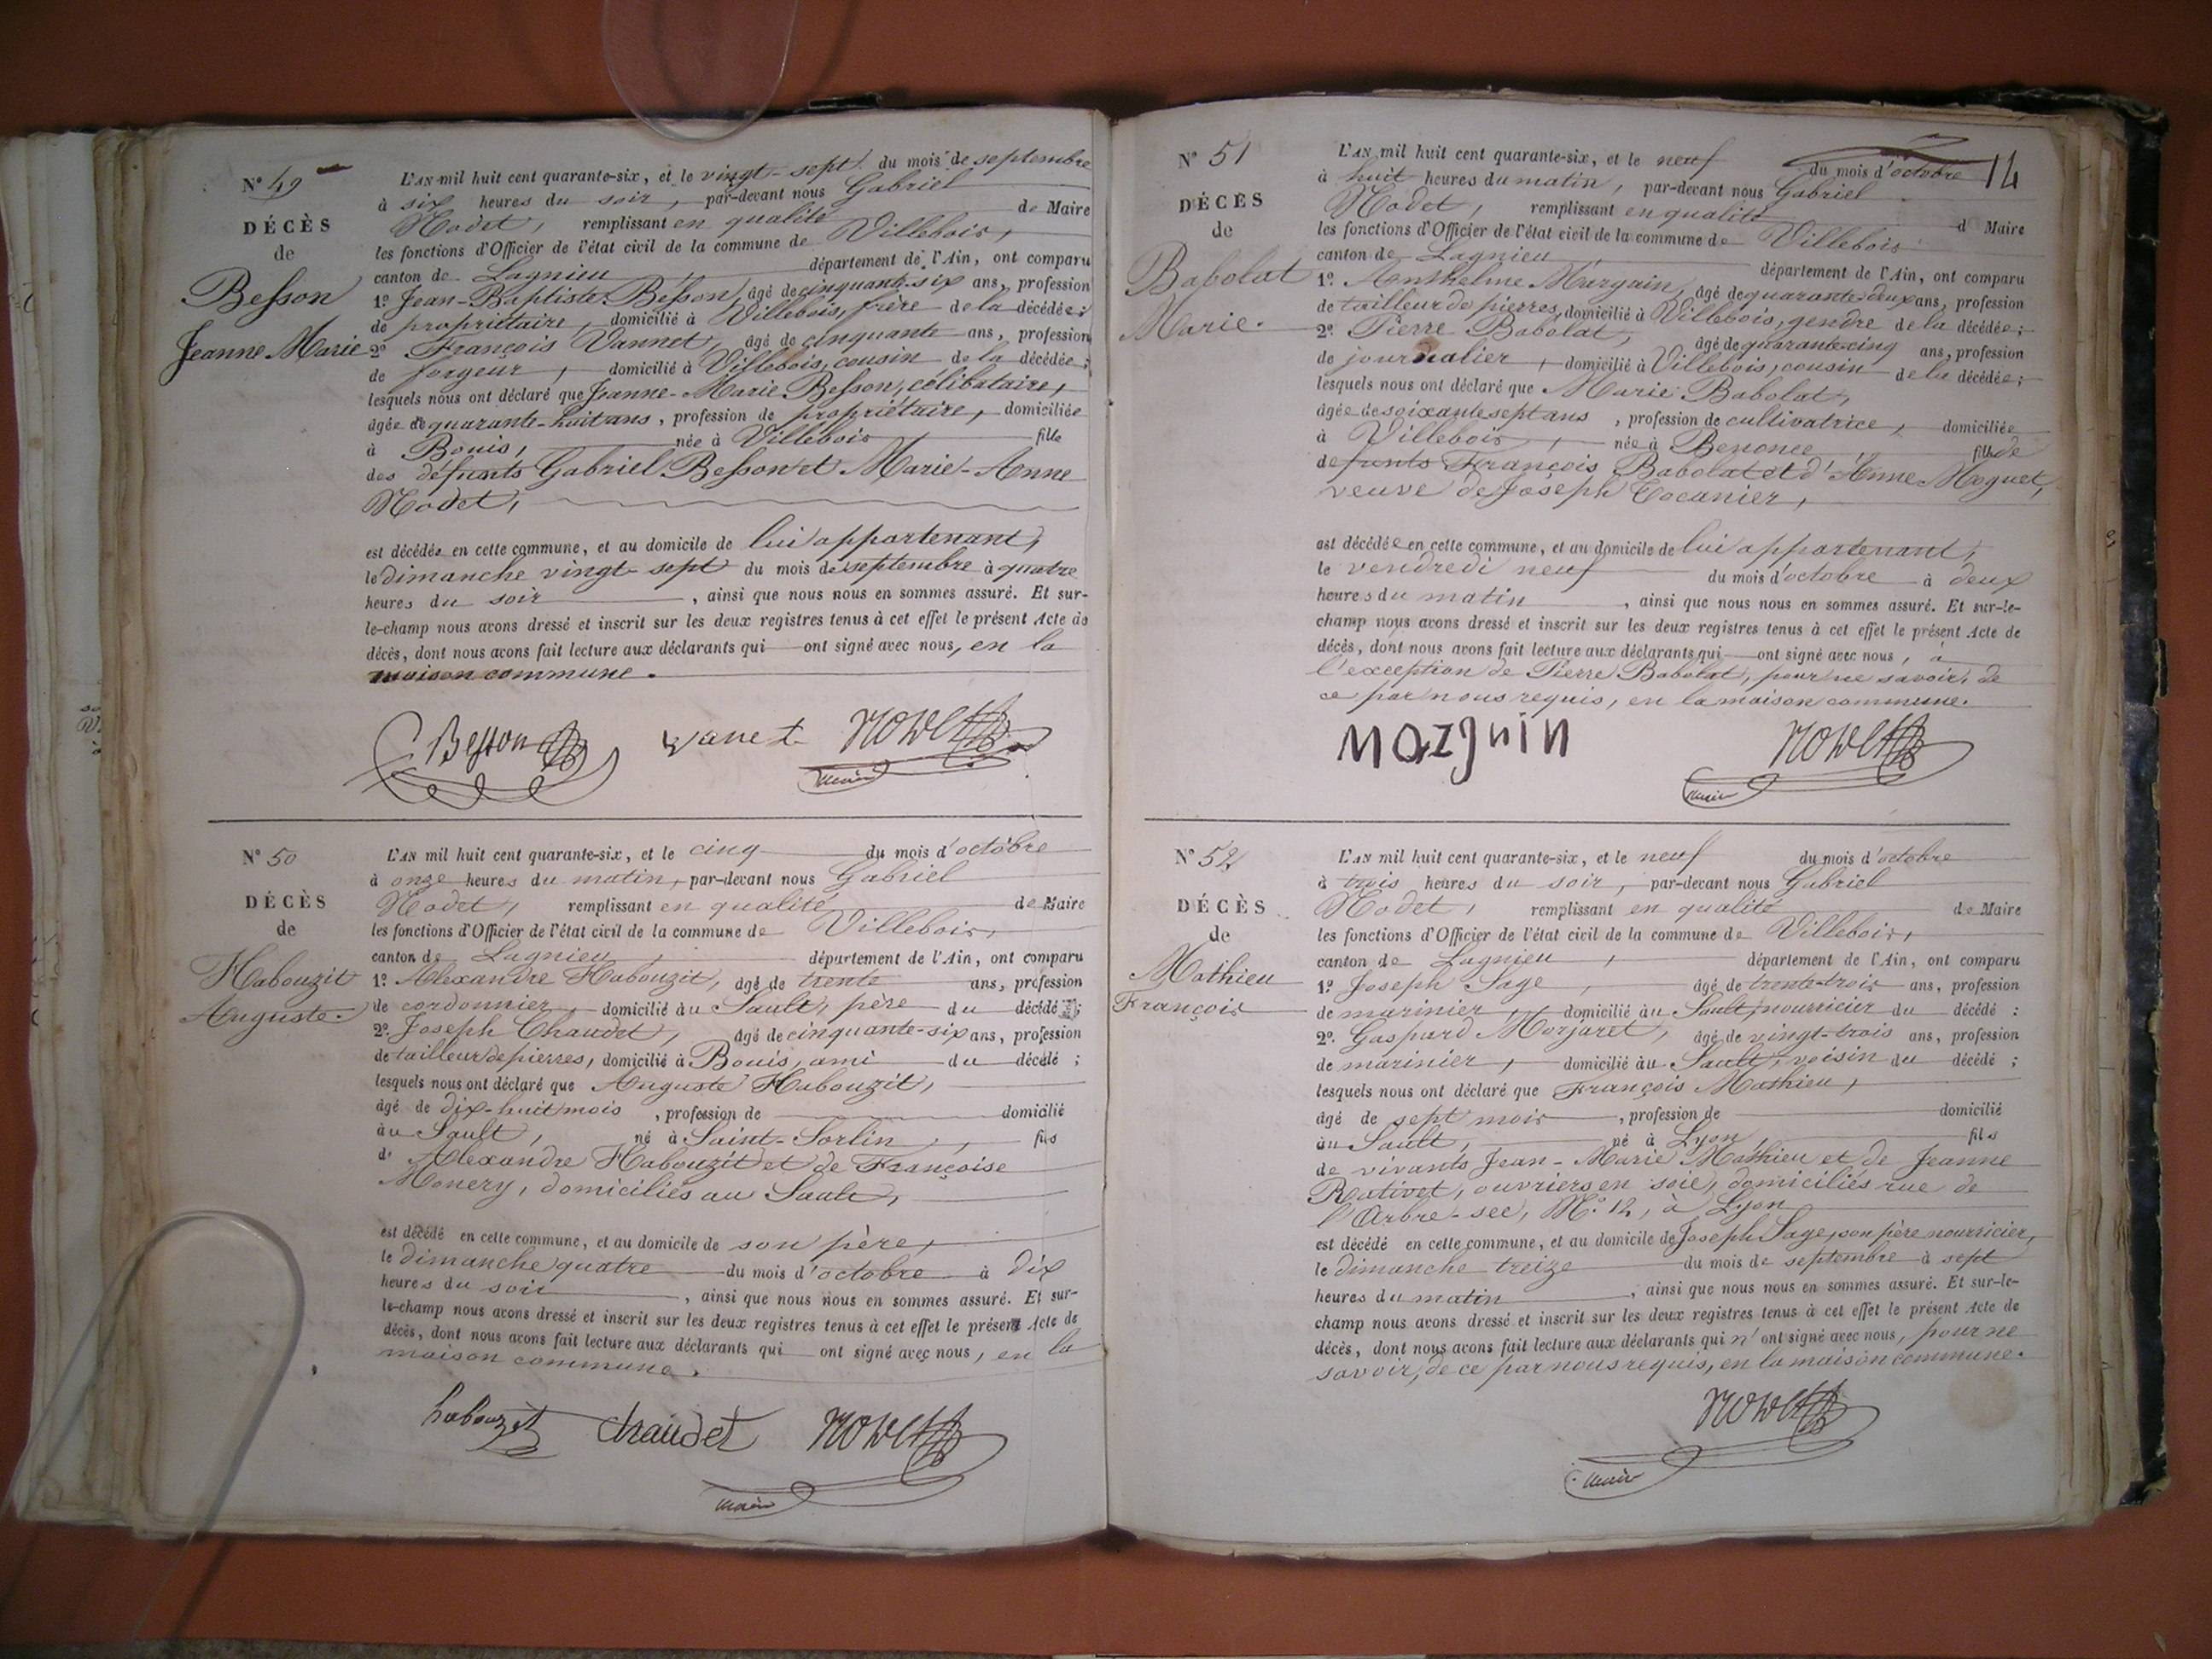 N° 49
DÉCÈS
de
Besson
Jeanne Marie
L'AN mil huit cent quarante-six, et le vingt-sept du mois de septembre
à six heures du soir, par-devant nous Gabriel
Nodet, remplissant en qualité de Maire
les fonctions d'Officier de l'état civil de la commune de Villebois,
canton de Lagnieu, département de l'Ain, ont comparu
1° Jean-Baptiste Besson, âgé de cinquante-six ans, profession
de propriétaire, domicilié à Villebois, frère de la décédée;
2° François Vannet, âgé de cinquante ans, profession
de forgeur, domicilié à Villebois, cousin de la décédée;
lesquels nous ont déclaré que Jeanne-Marie Besson, célibataire,
âgée de quarante-huit ans, profession de propriétaire, domiciliée
à Bouis, née à Villebois fille
des défunts Gabriel Besson et Marie-Anne
Nodet,
est décédée en cette commune, et au domicile de lui appartenant,
le dimanche vingt-sept du mois de septembre à quatre
heures du soir, ainsi que nous nous en sommes assuré. Et sur-
le-champ nous avons dressé et inscrit sur les deux registres tenus à cet effet le présent Acte de
décès, dont nous avons fait lecture aux déclarants qui ont signé avec nous, en la
maison commune.
Besson vanet Nodet
maire
N° 50
DÉCÈS
de
Habouzit
Auguste.
L'AN mil huit cent quarante-six, et le cinq du mois d'octobre
à onze heures du matin, par-devant nous Gabriel
Nodet, remplissant en qualité de Maire
les fonctions d'Officier de l'état civil de la commune de Villebois,
canton de Lagnieu, département de l'Ain, ont comparu
1° Alexandre Habouzit, âgé de trente ans, profession
de cordonnier, domicilié au Sault, père du décédé;
2° Joseph Chaudet, âgé de cinquante-six ans, profession
de tailleur de pierres, domicilié à Bouis, ami du décédé;
lesquels nous ont déclaré que Auguste Habouzit,
âgé de dix-huit mois, profession de domicilié
au Sault, né à Saint-Sorlin, fils
d'Alexandre Habouzit et de Françoise
Monery, domiciliés au Sault,
est décédé en cette commune, et au domicile de son père,
le dimanche quatre du mois d'octobre à dix
heures du soir, ainsi que nous nous en sommes assuré. Et sur-
le-champ nous avons dressé et inscrit sur les deux registres tenus à cet effet le présent Acte de
décès, dont nous avons fait lecture aux déclarants qui ont signé avec nous, en la
maison commune.
habouzit chaudet Nodet
maire
14
N° 51
DÉCÈS
de
Babolat
Marie.
L'AN mil huit cent quarante-six, et le neuf du mois d'octobre
à huit heures du matin, par-devant nous Gabriel
Nodet, remplissant en qualité d Maire
les fonctions d'Officier de l'état civil de la commune de Villebois
canton de Lagnieu, département de l'Ain, ont comparu
1° Anthelme Marguin, âgé de quarante-deux ans, profession
de tailleur de pierres, domicilié à Villebois, gendre de la décédée;
2° Pierre Babolat, âgé de quarante-cinq ans, profession
de journalier, domicilié à Villebois, cousin de la décédée;
lesquels nous ont déclaré que Marie Babolat,
âgée de soixante sept ans, profession de cultivatrice, domiciliée
à Villebois, née à Benonce fille de
defunts François Babolat et d'Anne Moguet,
veuve de Joseph Cocanier,
est décédée en cette commune, et au domicile de lui appartenant,
le vendredi neuf du mois d'octobre à deux
heures du matin, ainsi que nous nous en sommes assuré. Et sur-le-
champ nous avons dressé et inscrit sur les deux registres tenus à cet effet le présent Acte de
décès, dont nous avons fait lecture aux déclarants qui ont signé avec nous, à
l'exception de Pierre Babolat, pour ne savoir, de
ce par nous requis, en la maison commune.
Marguin Nodet
maire
N° 52
DÉCÈS
de
Mathieu
François
L'AN mil huit cent quarante-six, et le neuf du mois d'octobre
à trois heures du soir, par-devant nous Gabriel
Nodet, remplissant en qualité de Maire
les fonctions d'Officier de l'état civil de la commune de Villebois,
canton de Lagnieu, département de l'Ain, ont comparu
1° Joseph Sage, âgé de trente-trois ans, profession
de marinier, domicilié au Sault, nourricier du décédé;
2° Gaspard Morjaret, âgé de vingt-trois ans, profession
de marinier, domicilié au Sault, voisin du décédé;
lesquels nous ont déclaré que François Mathieu,
âgé de sept mois, profession de domicilié
au Sault, né à Lyon fils
de vivants Jean-Marie Mathieu et de Jeanne
Rativet, ouvriers en soie, domiciliés rue de
l'Arbre-sec, N° 12, à Lyon
est décédé en cette commune, et au domicile de Joseph Sage, son père nourricier,
le dimanche treize du mois de septembre à sept
heures du matin, ainsi que nous nous en sommes assuré. Et sur-le-
champ nous avons dressé et inscrit sur les deux registres tenus à cet effet le présent Acte de
décès, dont nous avons fait lecture aux déclarants qui n'ont signé avec nous, pour ne
savoir, de ce par nous requis, en la maison commune.
Nodet
maire